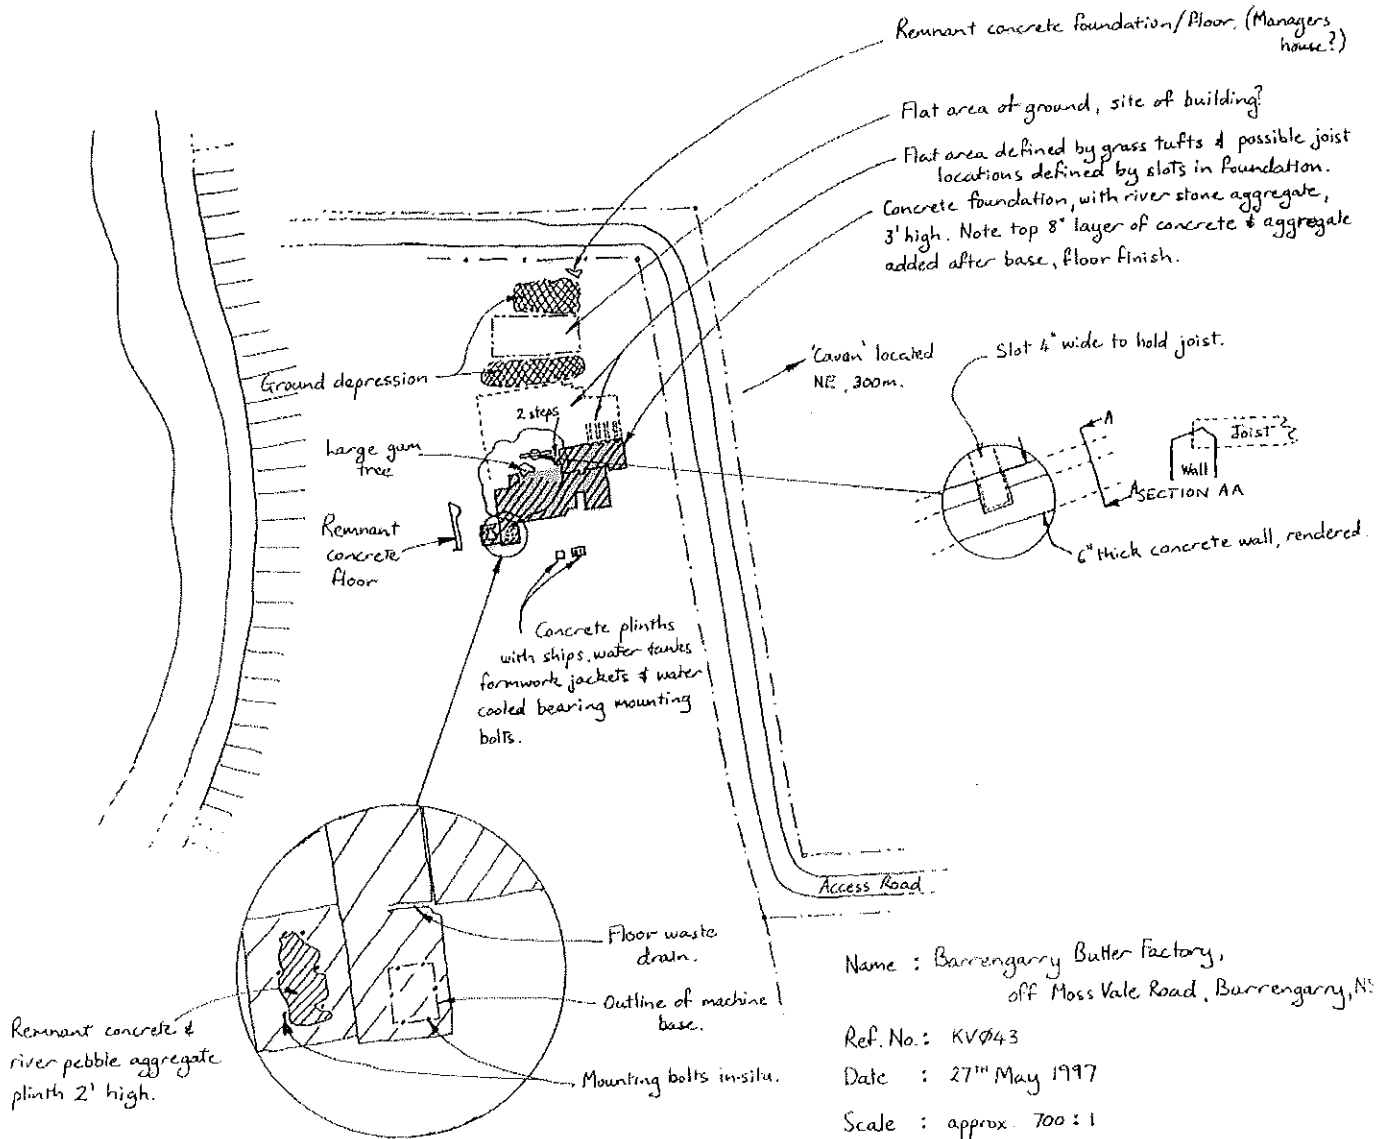 Remnant concrete foundation/floor. (Managers
house?)
Flat area of ground, site of building?
Flat area defined by grass tufts & possible joist
locations defined by slots in foundation.
Concrete foundation, with river stone aggregate,
3' high. Note top 8" layer of concrete & aggregate
added after base, floor finish.
'Cavan' located
NE, 300m.
Slot 4" wide to hold joist.
Ground depression
2 steps
Large gum
tree
A
Joist
Wall
A
SECTION AA
6" thick concrete wall, rendered.
Remnant
concrete
floor
Concrete plinths
with ships water tanks
formwork jackets & water
cooled bearing mounting
bolts.
Access Road
Floor waste
drain.
Outline of machine
base.
Mounting bolts in-situ.
Remnant concrete &
river pebble aggregate
plinth 2' high.
Name : Barrengarry Butter Factory,
off Moss Vale Road, Barrengarry, NS
Ref. No.: KVØ43
Date : 27TH May 1997
Scale : approx. 700:1